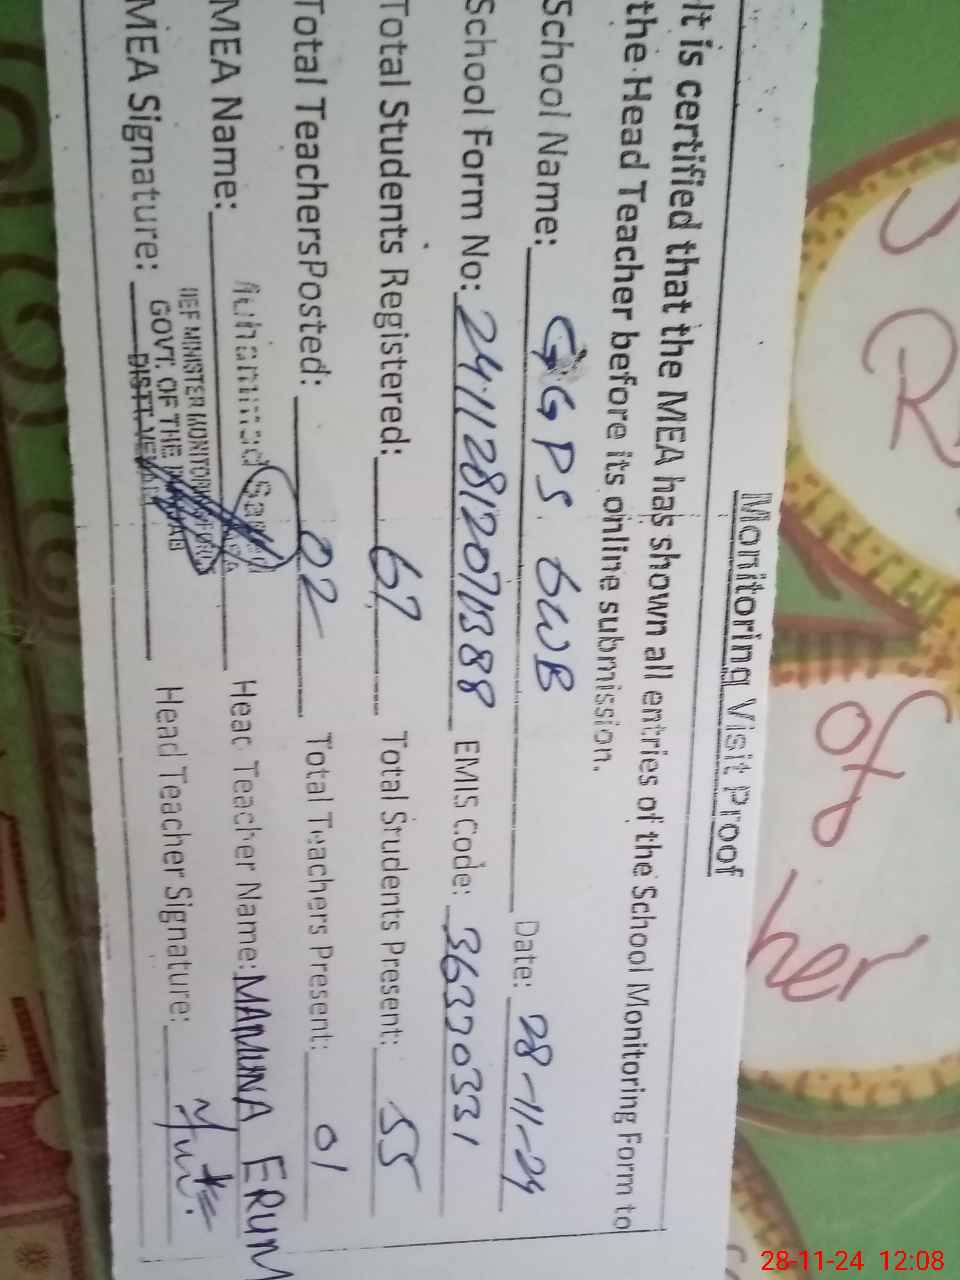 Monitoring Visit Proof
It is certified that the MEA has shown all entries of the School Monitoring Form to
the Head Teacher before its online submission.
School Name: GGPS 6WB Date: 28-11-24
School Form No: EMIS Code: 36320331
Total Students Registered: 67 Total Students Present: 55
Total Teachers Posted: 02 Total Teachers Present: 01
MEA Name: Muhammad Head Teacher Name: MAMUNA ERUM
MEA Signature: Head Teacher Signature:
GOVT. OF THE PUNJAB
of
her
28-11-24 12:08